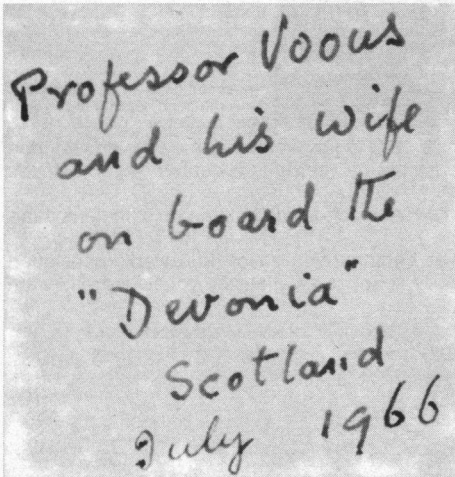 Professor Voous
and his wife
on board the
"Devonia"
Scotland
July 1966